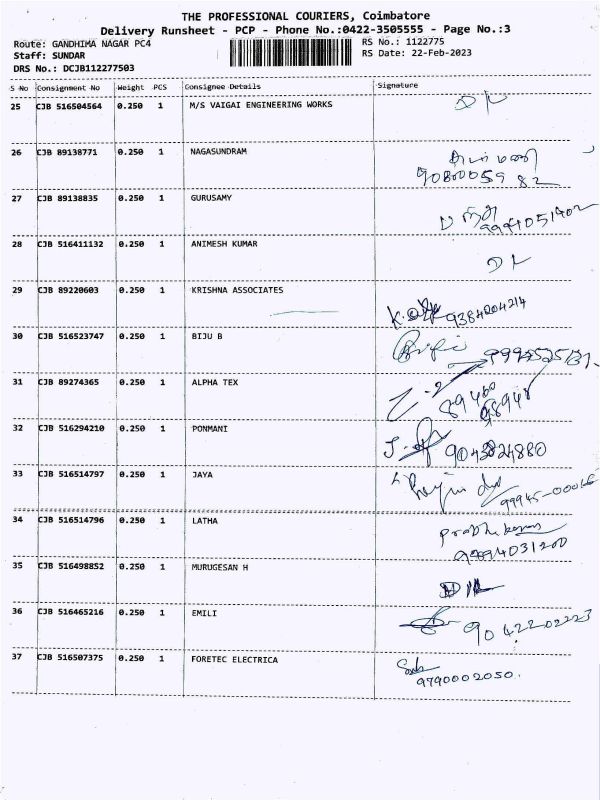 THE PROFESSIONAL COURIERS, Coimbatore
Delivery Runsheet - PCP - Phone No.:0422-3505555 - Page No.:3
Route: GANDHIMA NAGAR PC4
RS No.: 1122775
Staff: SUNDAR
RS Date: 22-Feb-2023
DRS No.: DCJB112277503
S No Consignment No Weight PCS Consignee Details Signature
25 CJB 516504564 0.250 1 M/S VAIGAI ENGINEERING WORKS
26 CJB 89138771 0.250 1 NAGASUNDRAM
27 CJB 89138835 0.250 1 GURUSAMY
28 CJB 516411132 0.250 1 ANIMESH KUMAR
29 CJB 89220603 0.250 1 KRISHNA ASSOCIATES
9384204214
30 CJB 516523747 0.250 1 BIJU B
31 CJB 89274365 0.250 1 ALPHA TEX
32 CJB 516294210 0.250 1 PONMANI
33 CJB 516514797 0.250 1 JAYA
99945-00066
34 CJB 516514796 0.250 1 LATHA
Prabhakaran
35 CJB 516498852 0.250 1 MURUGESAN H
36 CJB 516465216 0.250 1 EMILI
90 42202223
37 CJB 516507375 0.250 1 FORETEC ELECTRICA
9790002050